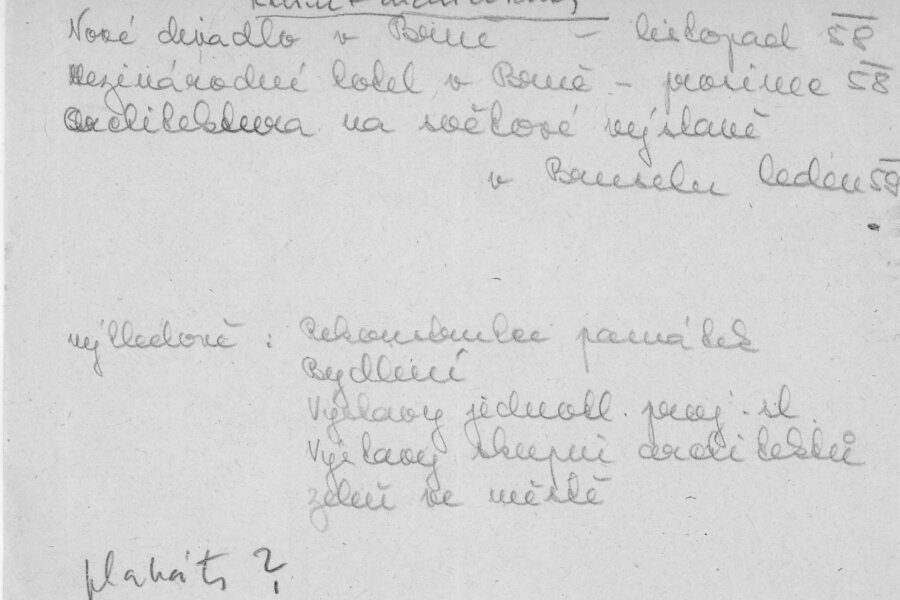 Nové divadlo v Brně - listopad 58
Mezinárodní hotel v Brně - prosinec 58
Architektura na světové výstavě
v Bruselu leden 59
výhledově : Rekonstrukce památek
Bydlení
Výstavy jednotl. proj. st.
Výstavy skupin architektů
zeleň ve městě
plakáty ?